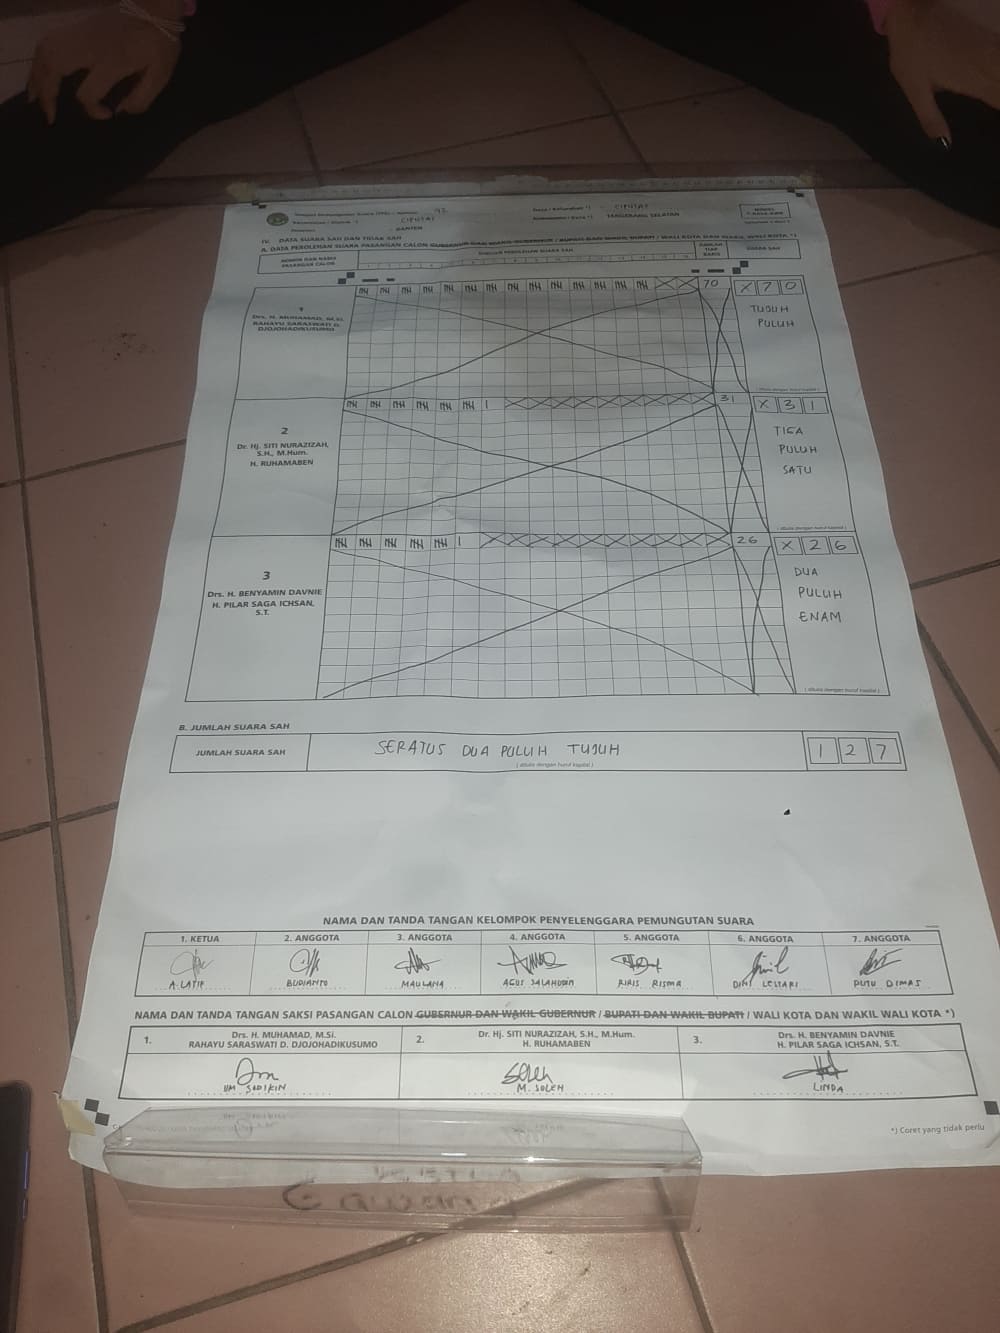 Tempat Pemungutan Suara (TPS) / Nomor : 92
Desa / Kelurahan *) : CIPUTAT
Kecamatan / Distrik *) : CIPUTAT
Kabupaten / Kota *) : TANGERANG SELATAN
Provinsi : BANTEN
IV. DATA SUARA SAH DAN TIDAK SAH
A. DATA PEROLEHAN SUARA PASANGAN CALON GUBERNUR DAN WAKIL GUBERNUR / BUPATI DAN WAKIL BUPATI / WALI KOTA DAN WAKIL WALI KOTA *)
NOMOR DAN NAMA PASANGAN CALON
RINCIAN PEROLEHAN SUARA SAH
JUMLAH TIAP BARIS
SUARA SAH
1
Drs. H. MUHAMAD, M.Si.
RAHAYU SARASWATI D.
DJOJOHADIKUSUMO
70
X 7 0
TUJUH
PULUH
( ditulis dengan huruf kapital )
2
Dr. Hj. SITI NURAZIZAH,
S.H., M.Hum.
H. RUHAMABEN
31
X 3 1
TIGA
PULUH
SATU
( ditulis dengan huruf kapital )
3
Drs. H. BENYAMIN DAVNIE
H. PILAR SAGA ICHSAN,
S.T.
26
X 2 6
DUA
PULUH
ENAM
( ditulis dengan huruf kapital )
B. JUMLAH SUARA SAH
JUMLAH SUARA SAH
SERATUS DUA PULUH TUJUH
( ditulis dengan huruf kapital )
1 2 7
NAMA DAN TANDA TANGAN KELOMPOK PENYELENGGARA PEMUNGUTAN SUARA
1. KETUA 2. ANGGOTA 3. ANGGOTA 4. ANGGOTA 5. ANGGOTA 6. ANGGOTA 7. ANGGOTA
A. LATIF BUDIANTO MAULANA AGUS SALAHUDIN RIRIS RISMA DINI LESTARI PUTU DIMAS
NAMA DAN TANDA TANGAN SAKSI PASANGAN CALON GUBERNUR DAN WAKIL GUBERNUR / BUPATI DAN WAKIL BUPATI / WALI KOTA DAN WAKIL WALI KOTA *)
1. Drs. H. MUHAMAD, M.Si.
RAHAYU SARASWATI D. DJOJOHADIKUSUMO
2. Dr. Hj. SITI NURAZIZAH, S.H., M.Hum.
H. RUHAMABEN
3. Drs. H. BENYAMIN DAVNIE
H. PILAR SAGA ICHSAN, S.T.
SADIKIN
M. SOLEH
LINDA
*) Coret yang tidak perlu